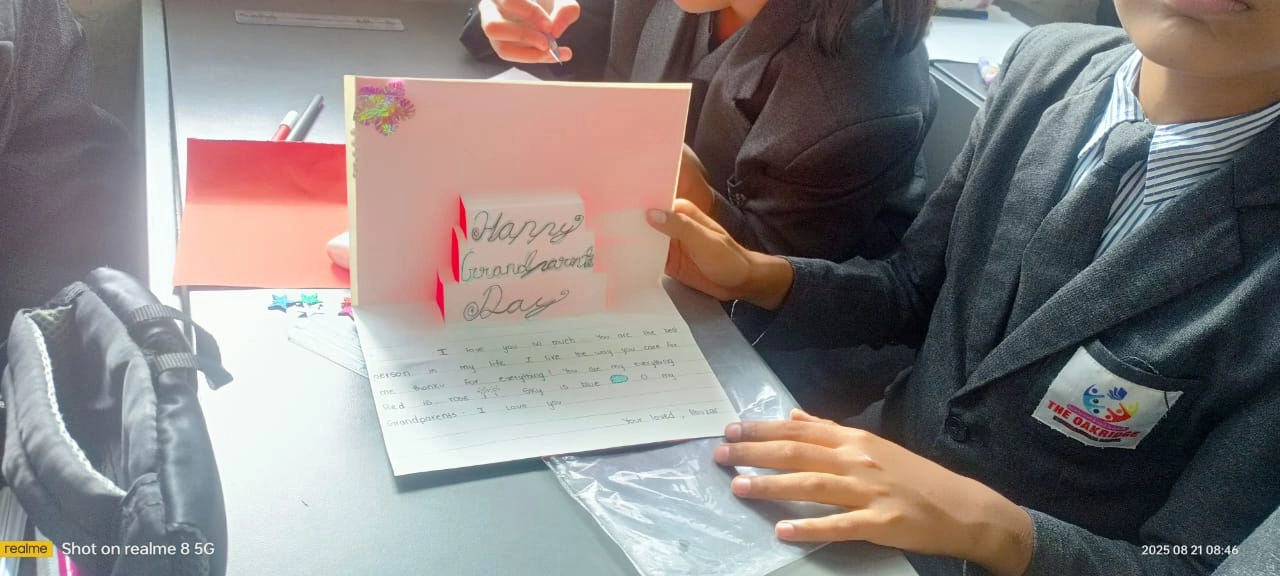 Happy
Grandparents
Day
I love you so much You are the best
person in my life I like the way you care for
me thanku for everything! You are my everything
Red is rose Sky is blue O my
Grandparents: I love you
Your loved,
THE OAKRIDGE
realme Shot on realme 8 5G
2025 08 21 08:46